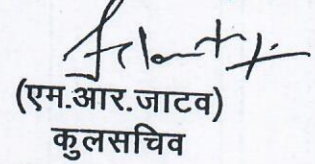 (एम.आर.जाटव)
कुलसचिव